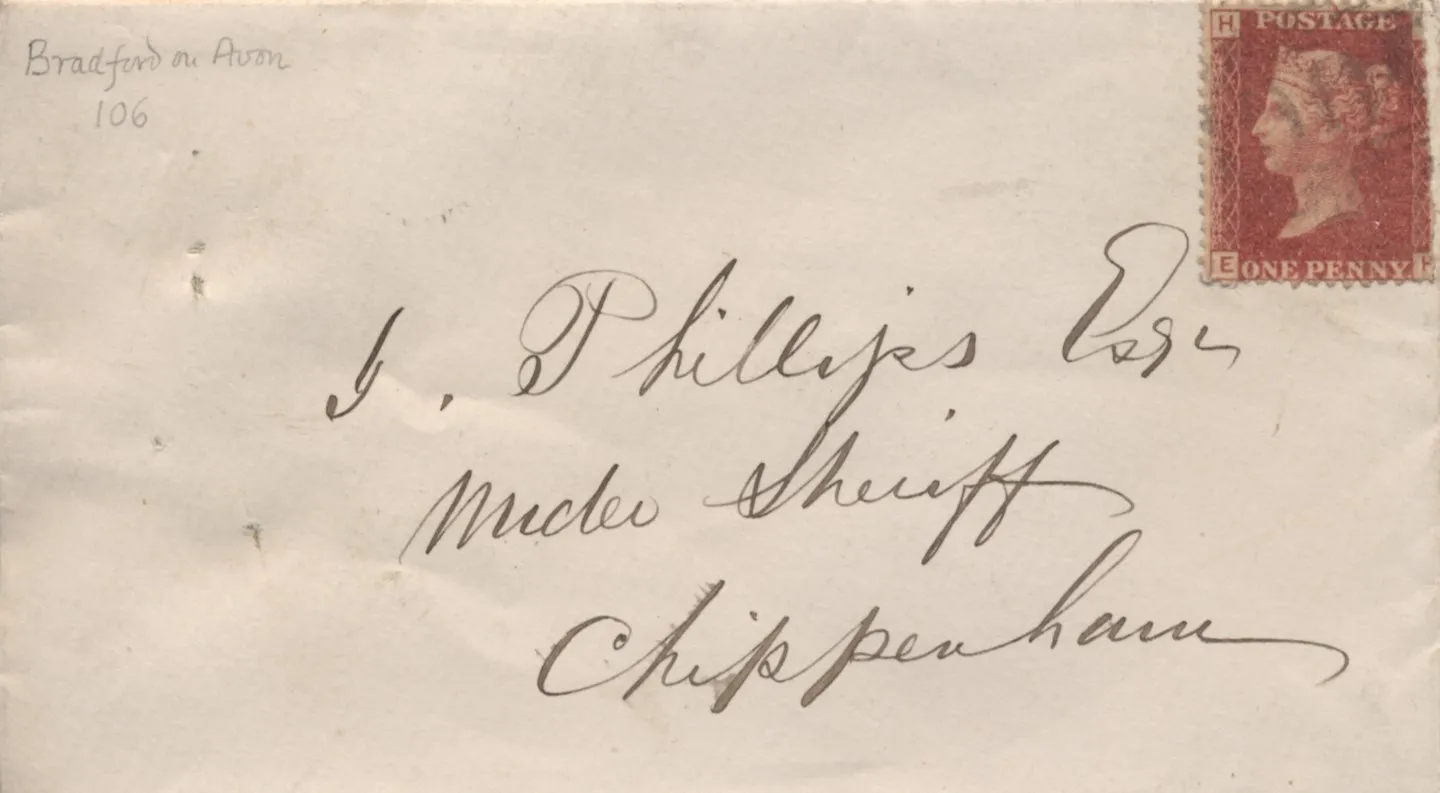 Bradford on Avon
106
H POSTAGE
E ONE PENNY
J. Phillips Esqr
Under Sheriff
Chippenham